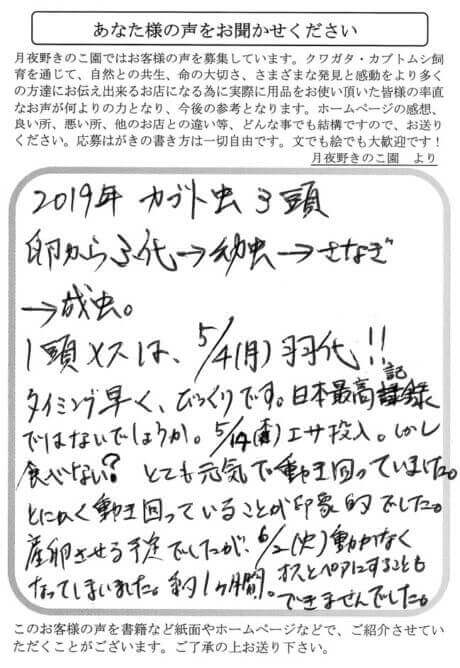 あなた様の声をお聞かせください
月夜野きのこ園ではお客様の声を募集しています。クワガタ・カブトムシ飼
育を通じて、自然との共生、命の大切さ、さまざまな発見と感動をより多く
の方達にお伝え出来るお店になる為に実際に用品をお使い頂いた皆様の率直
なお声が何よりの力となり、今後の参考となります。ホームページの感想、
良い所、悪い所、他のお店との違い等、どんな事でも結構ですので、お送り
ください。応募はがきの書き方は一切自由です。文でも絵でも大歓迎です！
月夜野きのこ園　より
2019年 カブト虫 3頭
卵からふ代→幼虫→さなぎ
→成虫。
1頭メスは、5/4(月)羽代!!
タイミング早く、びっくりです。日本最高記録
ではないでしょうか。5/14(木)エサ投入。しかし
食べない? とても元気で動き回っていました。
とにかく動き回っていることが印象的でした。
産卵させる予定でしたが、6/2(火)動かなく
なってしまいました。約1ヶ月間。オスとペアにすることも
できませんでした。
このお客様の声を書籍など紙面やホームページなどで、ご紹介させてい
ただくことがございます。ご了承の上お送り下さい。